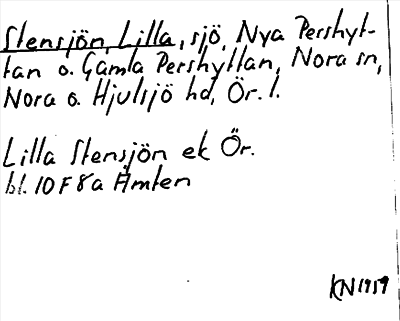 Stensjön, Lilla, sjö, Nya Pershyt-
tan o. Gamla Pershyttan, Nora sn,
Nora o. Hjulsjö hd, Ör. l.
Lilla Stensjön ek Ör.
bl. 10 F 8 a Åmten
KN 1959